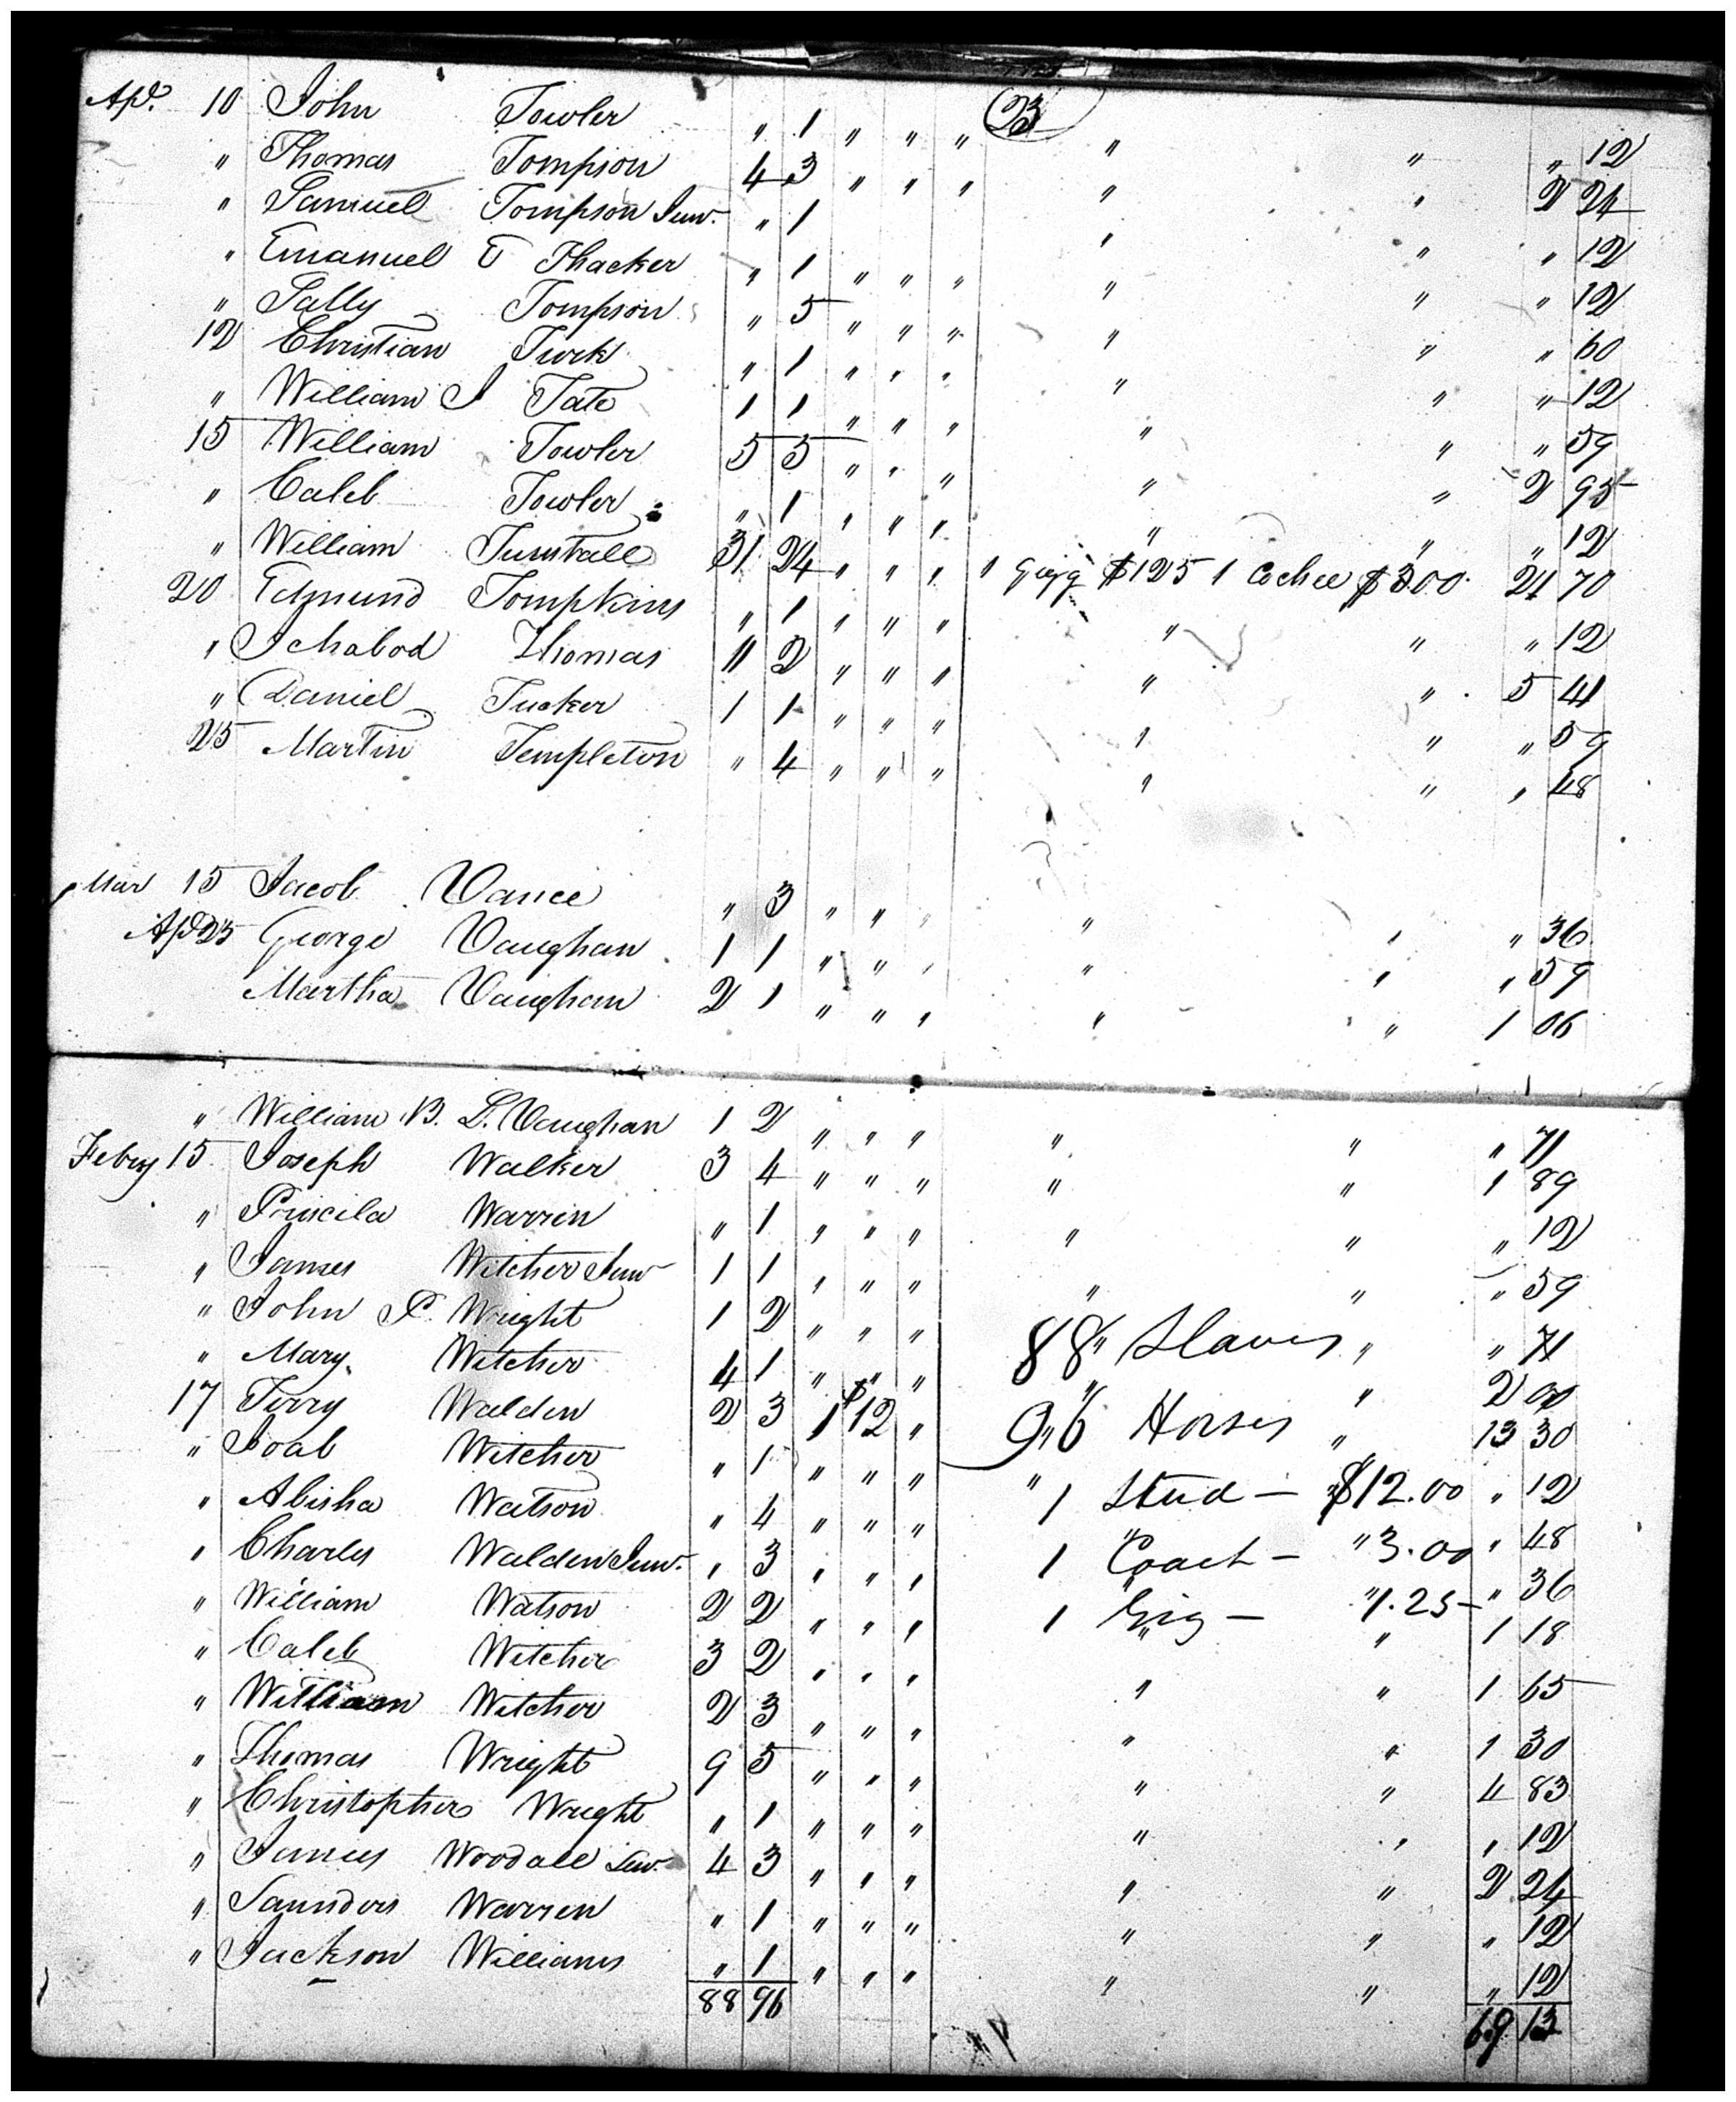 23
Apl. 10 John Towler " 1 " " " " " " 12
" Thomas Tompson 4 3 " " " " " 2 24
" Samuel Tompson Junr. " 1 " " " 12
" Emanuel T Thacker " 1 " " " " " " 12
" Sally Tompson " 5 " " " " " " 60
12 Christian Turk " 1 " " " " " " 12
" William I Tate 1 1 " " " " " " 59
15 William Towler 5 5 " " " " " 2 95
" Caleb Towler " 1 " " " " " " 12
" William Tunstall 31 24 " " " 1 Gigg $125 1 Cochee $300 21 70
20 Edmund Tompkins " 1 " " " " " " 12
" Ichabod Thomas 11 2 " " " " " 5 41
" Daniel Tucker 1 1 " " " " " " 59
25 Martin Templeton " 4 " " " " " " 48
Mar 15 Jacob Vance " 3 " " " " " " 36
Apl 25 George Vaughan 1 1 " " " " " " 59
Martha Vaughan 2 1 " " " " " 1 06
" William B. L. Vaughan 1 2 " " " " " " 71
Febry 15 Joseph Walker 3 4 " " " " " 1 89
" Priscila Warrin " 1 " " " " " " 12
" James Witcher Junr 1 1 " " " " " " 59
" John P. Wright 1 2 " " " 88 " Slaves " " 71
" Mary Witcher 4 1 " " " " " 2 00
17 Terry Walden 2 3 1 $12 " 96 Horses " 13 30
" Joab Witcher " 1 " " " " 1 Stud — $12.00 " 12
" Abisha Watson " 4 " " " 1 Coach — " 3.00 " 48
" Charles Walden Junr. " 3 " " " 1 Gig — " 1.25 — " 36
" William Watson 2 2 " " " " " 1 18
" Caleb Witcher 3 2 " " " " " 1 65
" William Witcher 2 3 " " " " " 1 30
" Thomas Wright 9 5 " " " " " 4 83
" Christopher Wright " 1 " " " " " " 12
" James Woodall 4 3 " " " " " 2 24
" Saunders Warren " 1 " " " " " " 12
" Jackson Williams " 1 " " " " " " 12
88 96 69 13